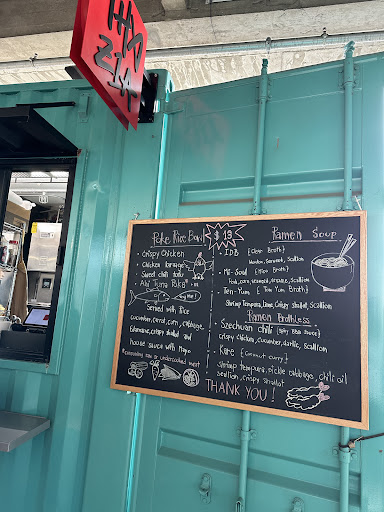 Poke Rice Bowl
$ 19
• Crispy Chicken
• Chicken Karaage
• Sweet chili tofu
• Ahi Tuna Poke*
Served with Rice
cucumber, carrot, corn, cabbage
Edamame, crispy shallot and
house sauce with Mayo
* consuming raw or undercooked meat
Ramen Soup
• IDB {Clear Broth}
Wonton, Seaweed, Scallion
• Mi-Soul {Miso Broth}
Tofu, corn, seaweed, Scallion
• Ten-Yum {Tom Yum Broth}
Shrimp Tempura, Lime, Crispy shallot, Scallion
Ramen Brothless
• Szechuan Chili
crispy Chicken, cucumber, garlic, Scallion
• Kare {Coconut curry}
Shrimp tempura, pickle cabbage, chili oil
Scallion, crispy shallot
THANK YOU!